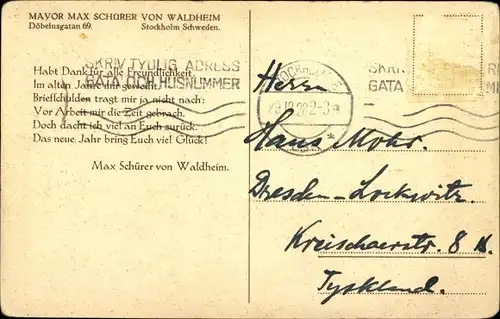 MAYOR MAX SCHÜRER VON WALDHEIM
Döbelnsgatan 69. Stockholm Schweden.
SKRIV TYDLIG ADRESS
GATA OCH HUSNUMMER
Habt Dank für alle Freundlichkeit
Im alten Jahre mir geweiht.
Briefschulden tragt mir ja nicht nach:
Vor Arbeit mir die Zeit gebrach.
Doch dacht ich viel an Euch zurück.
Das neue Jahr bring Euch viel Glück!
Max Schürer von Waldheim.
STOCKHOLM
2-3
SKRIV
GATA
Herrn
Hans Mohr.
Dresden-Lockwitz.
Kreischaerstr. 8
Tyskland.